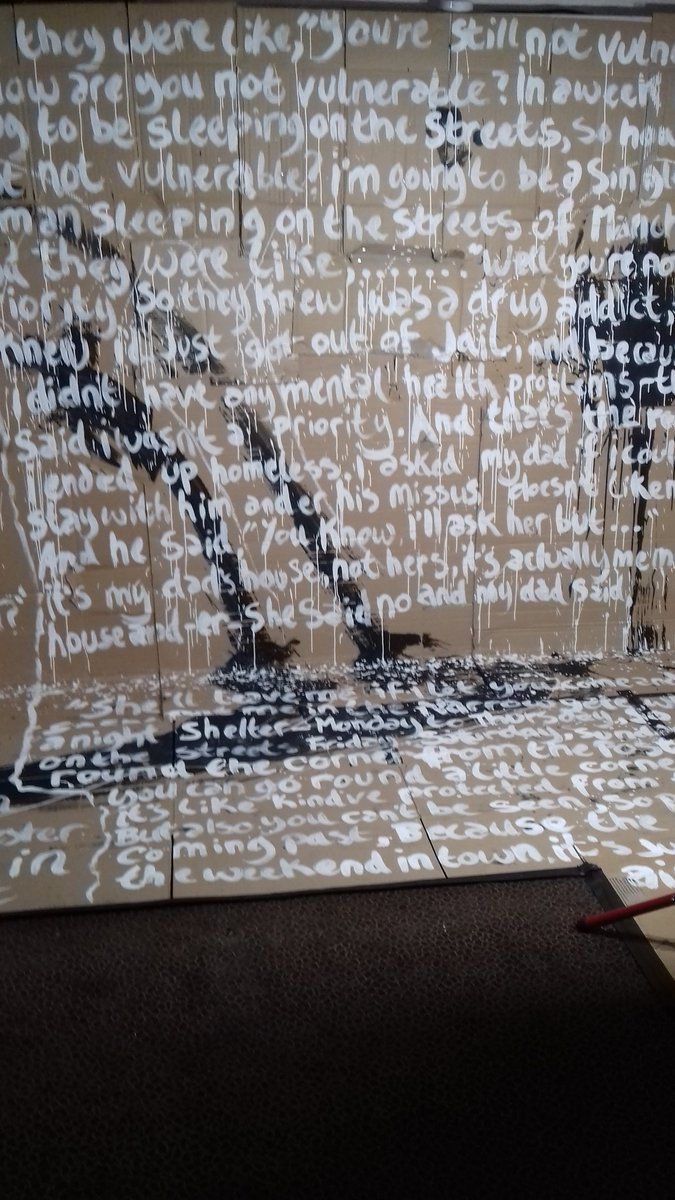 they were like, "You're still not vulne
how are you not vulnerable? In a week
g to be sleeping on the streets, so how
not vulnerable? i'm going to be a singl
man sleeping on the streets of Manch
d they were like ,......"Well you're no
riority, so they knew i was a drug addict,
knew i'd just got out of Jail, and becau
I didn't have any mental health problems th
Said I wasn't a priority. And that's the re
ended up homeless. I asked my dad if i coul
stay with him and er his missus doesn't like m
And he said, "You know, i'll ask her but ..."
it's my dads house, not hers, it's actually me m
house and-er-she said no and my dad said
"She'll leave me if i let you
me in the Narrow
a night Shelter-Monday to Thursday.
on the streets Friday, Saturday, Sund
round the corner from the
you can go round a little corne
it's like kind've protected from
But also you can't be seen, so p
coming past. Because the
the weekend in town. it's
ster
in
ai